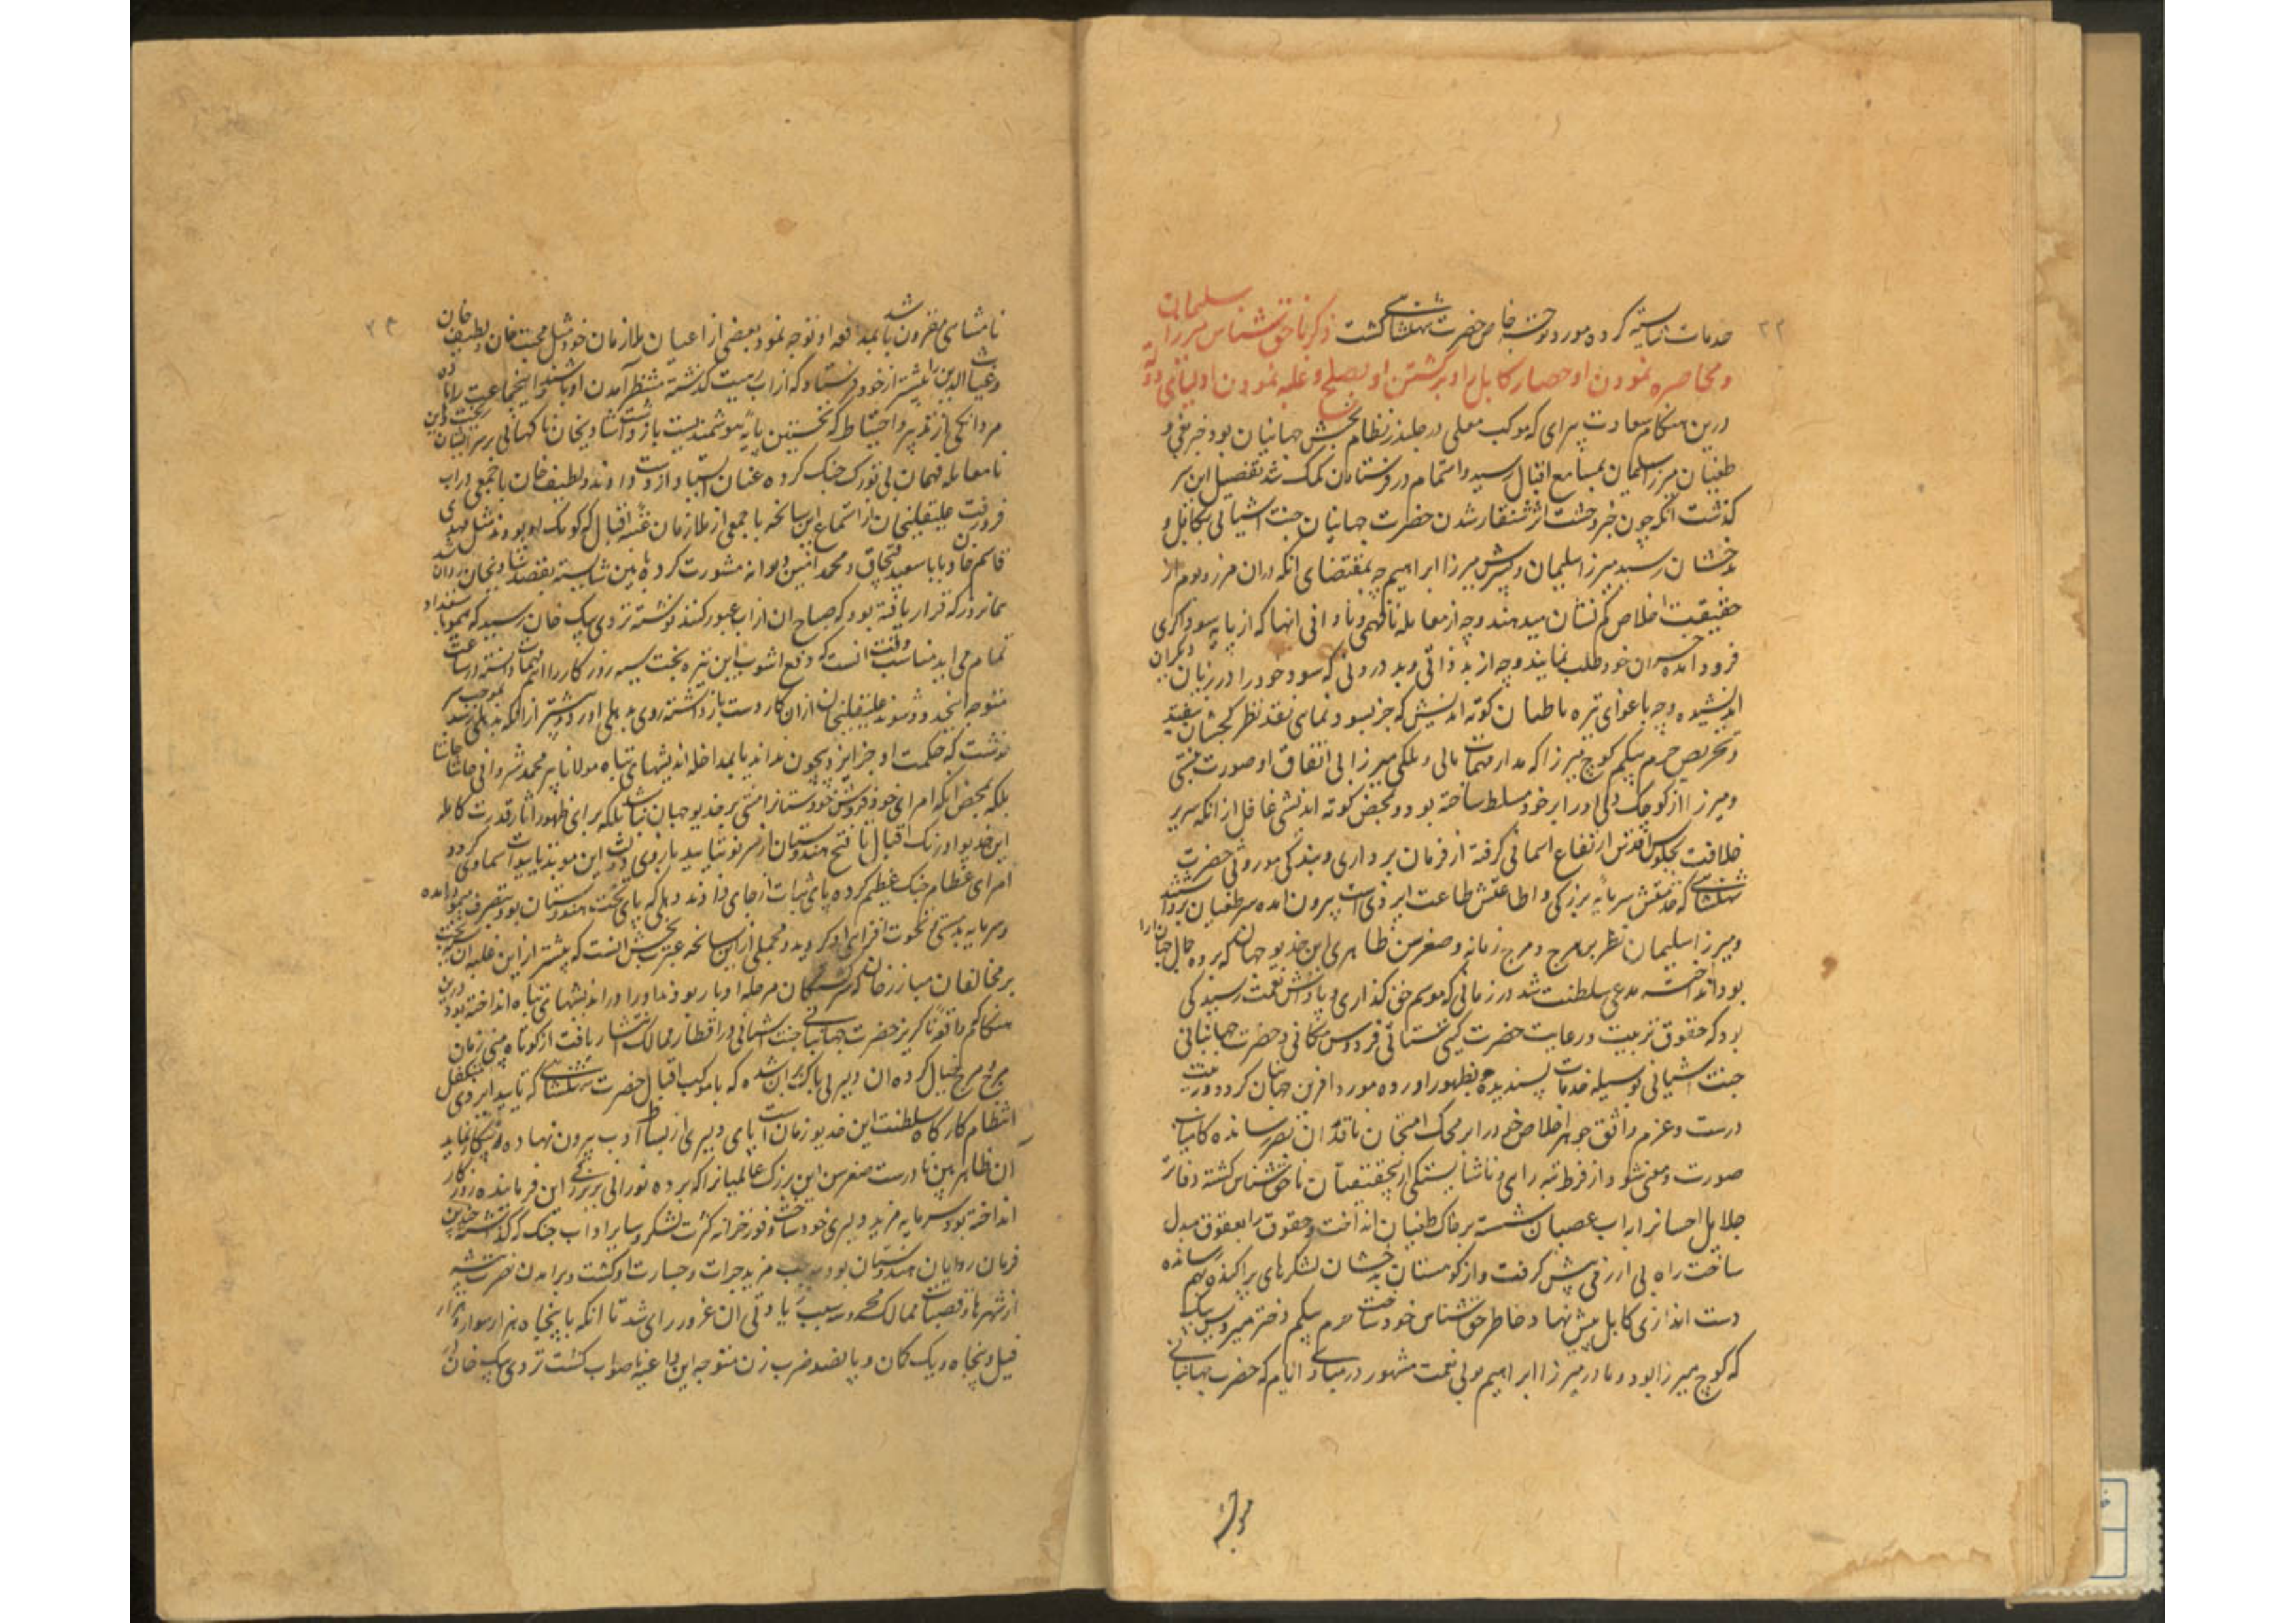 ۲۳
خدمات شایسته کرده مورد توجه خاص حضرت شهنشاهی گشت ذکر ناحق شناسی میرزا سلیمان
و محاصره نمودن او حصار کابل را و برگشتن او بصلح و غلبه نمودن اولیائی دولت
درین هنگام سعادت پیرای که موکب معلی در جلندر نظام بخش جهانیان بود خبر بغی و
طغیان میرزا سلیمان بمسامع اقبال رسید و اهتمام در فرستادن کمک شد تفصیل این سر
گذشت آنکه چون خبر وحشت اثر شنقار شدن حضرت جهانبانی جنت آشیانی بکابل و
بدخشان رسید میرزا سلیمان و پسرش میرزا ابراهیم چه بمقتضای آنکه دران مرز و بوم از
حقیقت اخلاص کم نشان میدهند و چه از معامله نافهمی و نادانی انها که از پایه سوداگری
فرود آمده خسران خود طلب نمایند و چه از بد ذاتی و بد درونی که سود خود را در زیان دیگران
اندیشیده و چه باغوای تیره باطنان کوته اندیش که جز بسود نمای نقد نظر کج شان نیفتد
و تحریص حرم بیگم کوچ میرزا که مدار مهمات مالی و ملکی میرزا بی اتفاق او صورت نبستی
و میرزا از کوچک دلی او را بر خود مسلط ساخته بود و بمحض کوته اندیشی غافل از آنکه سریر
خلافت بجلوس اقدس ارتفاع آسمانی گرفته از فرمان برداری و بندگی موروثی حضرت
شهنشاهی که خدمتش سرمایه بزرگی و اطاعتش طاعت ایزدی است بیرون آمده سر طغیان برداشتند
و میرزا سلیمان نظر بر هرج و مرج زمانه و صغر سن ظاهری این خدیو جهان که پرده جمال جهان آرا
بود انداخته مدعی سلطنت شد در زمانی که موسم حق گذاری و پاداش نعمت رسیدگی
بود که حقوق تربیت و رعایت حضرت گیتی ستانی فردوس مکانی و حضرت جهانبانی
جنت آشیانی بوسیله خدمات پسندیده بظهور آورده مورد آفرین جهانیان گردد و نیت
درست و عزم واثق جوهر اخلاص خود را بر محک امتحان ناقدان بصیر رسانده کامیاب
صورت و معنی شود از فرط تبه رای و ناشایستگی از حقیقت آن ناحق شناس گشته دفاتر
جلایل احسان را باب عصیان شسته بر خاک طغیان انداخت و حقوق را بعقوق مبدل
ساخت راه بی آزرمی پیش گرفت و از کوهستان بدخشان لشکرهای پراکنده بهم رسانده
دست اندازی کابل پیش نهاد خاطر حق ناشناس خود ساخت حرم بیگم دختر میر ویس بیگ
که کوچ میرزا بود و مادر میرزا ابراهیم بولی نعمت مشهور در مبادی ایام که حضرت جهانبانی
۲۴
نامشای مقرون باشد بمدافعه او توجه نمود و بعضی از اعیان ملازمان خود مثل محبت خان و لطیف خان
و غیاث الدین را پیشتر از خود فرستاد که از آب رهب گذشته منتظر آمدن او باشند اینجماعت را نا
مردانگی از تدبیر و احتیاط که نخستین پایه هوشمندیست باز داشت شادیخان ناگهانی بر سر ایشان ریخت و این
نامعامله فهمان بی توزک جنگ کرده عنان استبداد از دست دادند و لطیف خان با جمعی در آب
فرو رفت علیقلیخان از استماع این سانحه با جمعی از ملازمان عتبه اقبال که کومک او بودند مثل مهدی
قاسم خان و بابا سعید قبچاق و محمد امین دیوانه مشورت کرده بآئین شایسته بقصد شادیخان روان شد
همانروز که قرار یافته بود که صباح آن از آب عبور کنند نوشته تردی بیگ خان رسید که هیمو باستعداد
تمام می آید مناسب وقت آنست که دفع آشوب این تیره بخت سیه روزگار را اهم مهمات دانسته در ساعت
متوجه اینحدود شوند علیقلیخان از آن کار دست باز داشته روی بدهلی آورد و پیشتر از آنکه بدهلی رسد بموجب سر
نوشت که حکمت او جز ایزد بیچون نداند یا بمداخله اندیشهای تباه مولانا پیر محمد شروانی حاشا حاشا
بلکه بمحض آنکه امرای خود فروش خودستا را منتی بر خدیو جهان نباشد بلکه برای ظهور آثار قدرت کامله
این خدیو اورنگ اقبال تا فتح هندوستان از سر نو بتایید بازوی دولت این موید بتاییدات سماوی گردد
امرای عظام جنگ عظیم کرده پای ثبات از جای دادند و دهلی که پای تخت هندوستان بود بتصرف هیمو درآمده
و سرمایه بدمستی نخوت افزای او گردید و مجملی ازین سانحه عبرت بخش آنست که پیشتر ازین غلبه آن بدبخت
بر مخالفان مبارزخان که سرگشتگان مرحله ادبار بودند او را در اندیشهای تباه انداخته بود درین
هنگام که واقعه ناگزیر حضرت جهانبانی جنت آشیانی در اقطار ممالک انتشار یافت از کوتاه بینی زمان
هرج مرج خیال کرده آن دلیر بی باک بران شده که با موکب اقبال حضرت شهنشاهی که تایید ایزدی متکفل
انتظام کارگاه سلطنت این خدیو زمان است پای دلیری از بساط ادب بیرون نهاده پیکار نماید
آن ظاهر بین نادرست صغر سن این بزرگ عالمیان را که پرده نورانی بر بزرگی این فرماینده روزگار
انداخته بود سرمایه مزید دلیری خود ساخت و وفور خزانه کثرت لشکر و سایر ادات جنگ که گذاشته چندین
فرمان روایان هندوستان بود موجب مزید جرات و جسارت او گشت و برآمدن نصرت پیشه
از شهرها و قصبات ممالک محروسه سبب زیادتی آن غرور رای شد تا آنکه با پنجاه هزار سوار و هزار
فیل و پنجاه و یک کمان و پانصد ضرب زن متوجه این داعیه ناصواب گشت تردی بیگ خان در